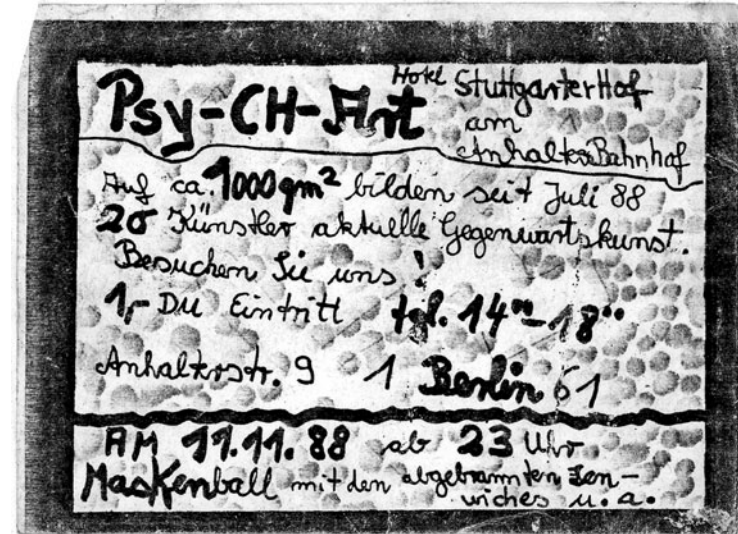 Psy-CH-Art
Hotel Stuttgarter Hof
am
Anhalter Bahnhof
Auf ca. 1000qm² bilden seit Juli 88
20 Künstler aktuelle Gegenwartskunst.
Besuchen Sie uns!
1,- DM Eintritt tgl. 14°°-18°°
Anhalterstr. 9 1 Berlin 61
AM 11.11.88 ab 23 Uhr
Maskenball mit den abgebrannten
u. a.